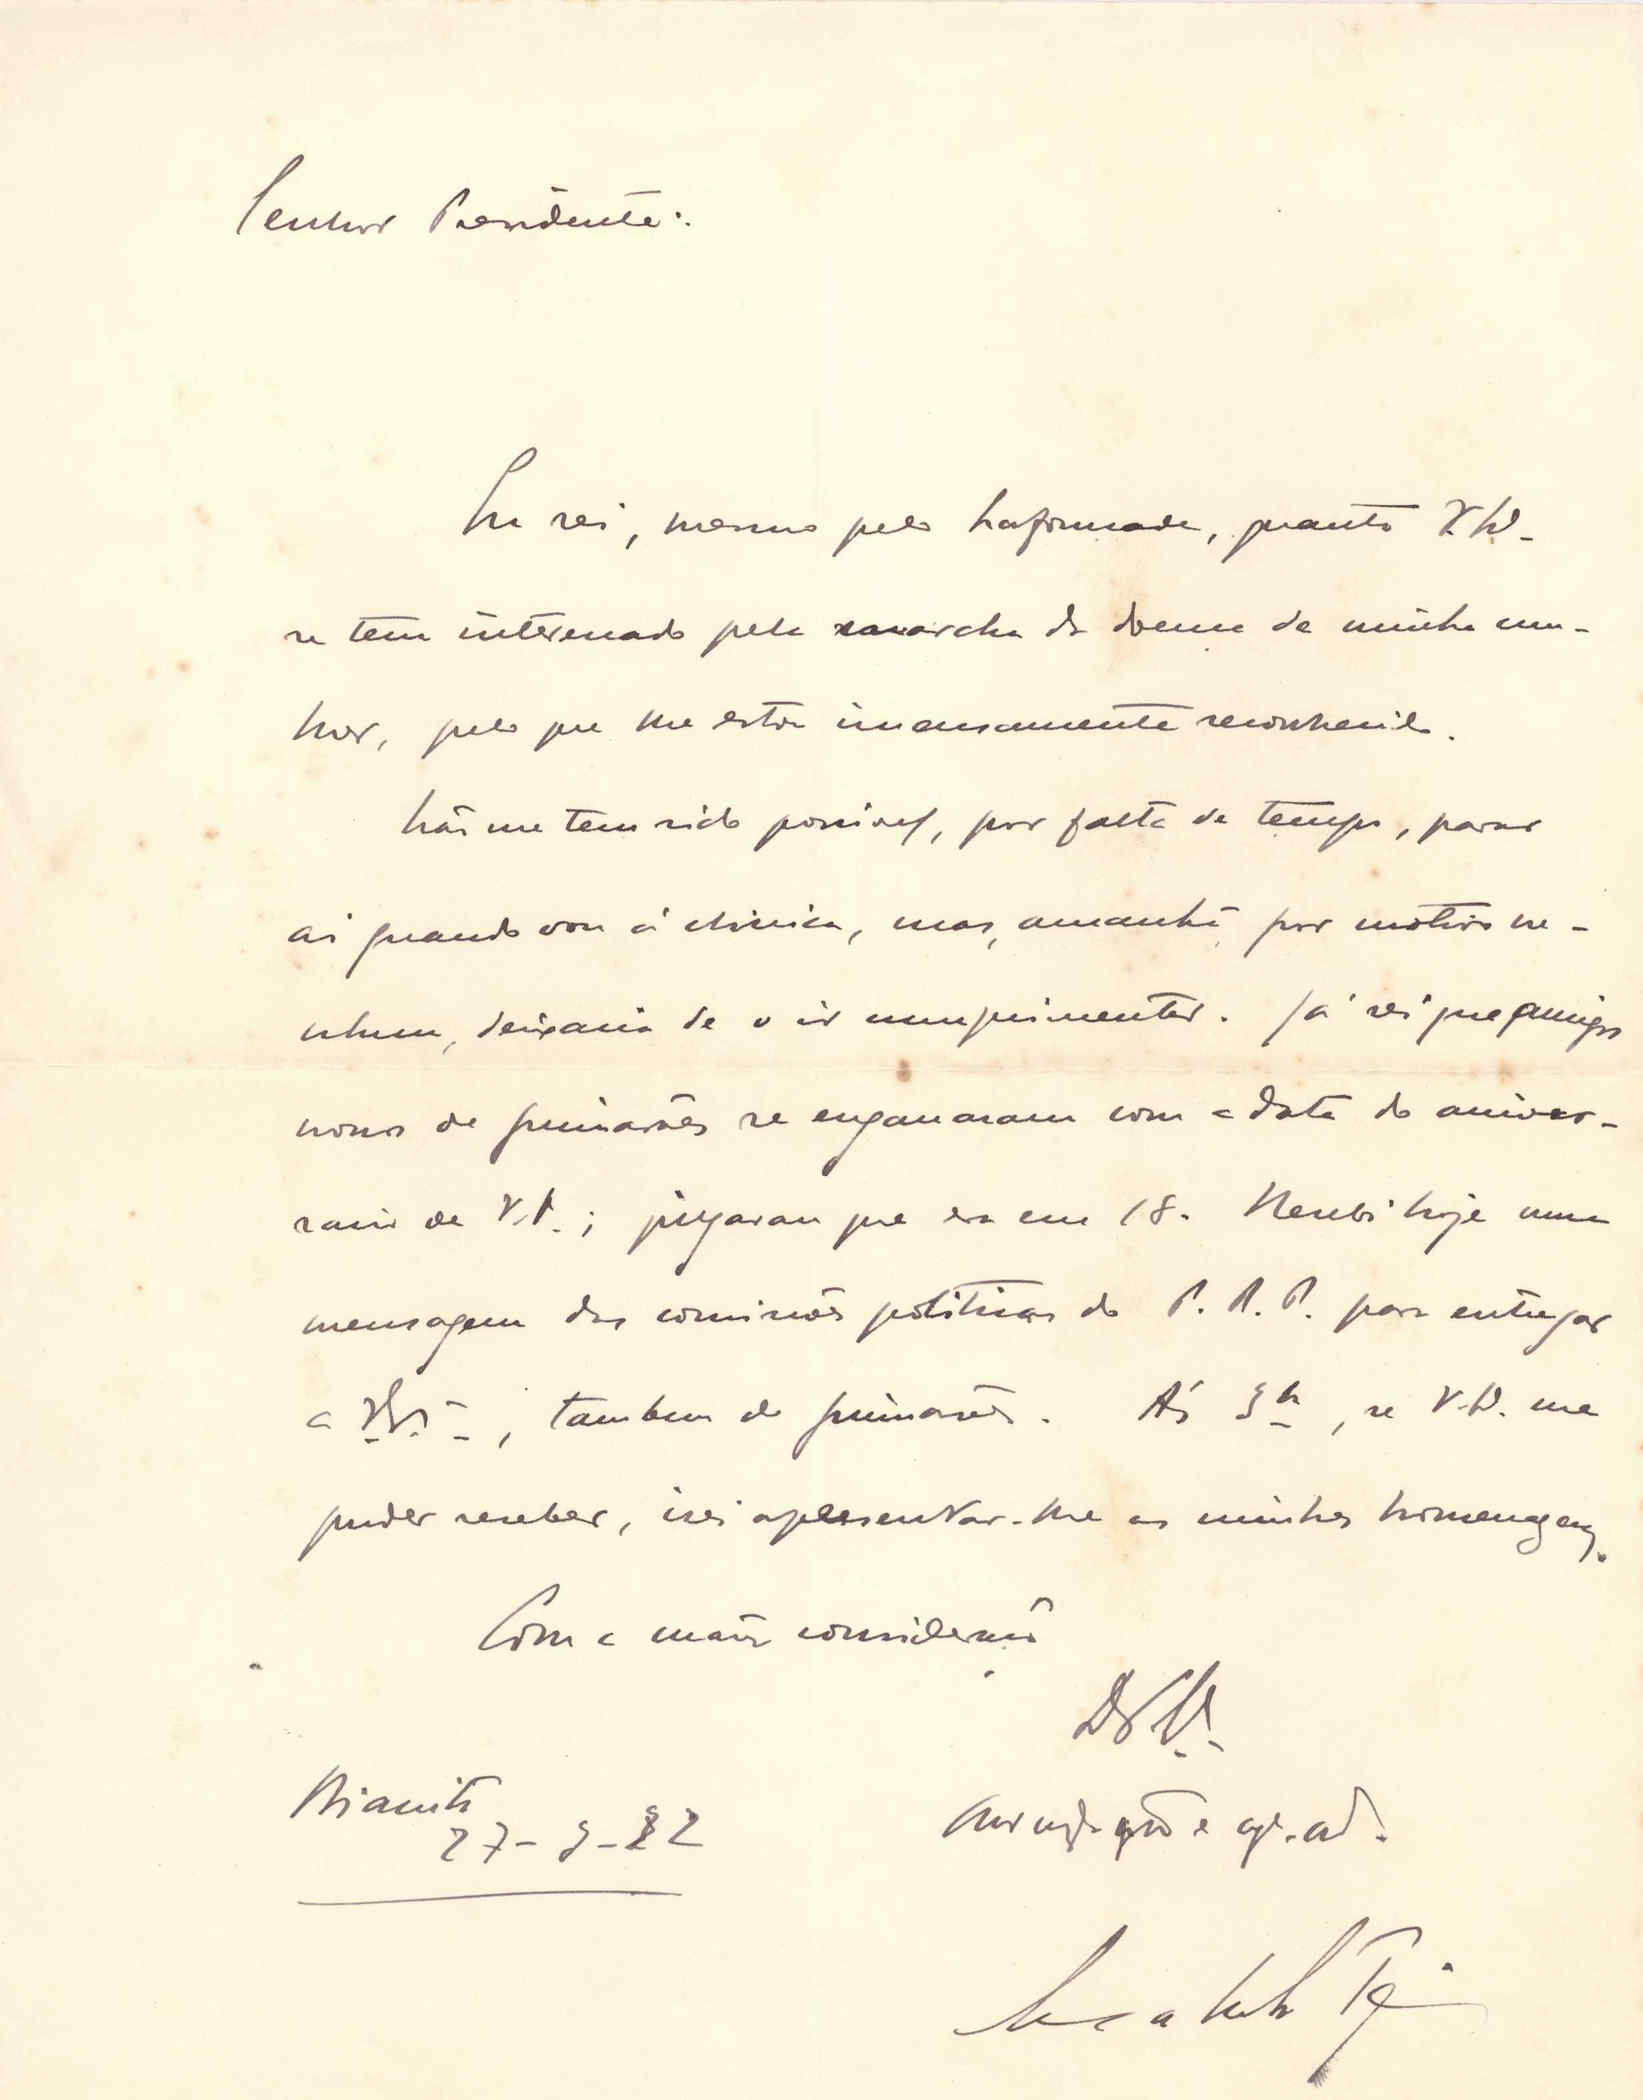 Senhor Presidente:
Eu sei, mesmo pelo, quanto V. Ex.
se tem interessado pela marcha da doença de minha mu-
lher, pelo que lhe estou imensamente reconhecido.
Não me tem sido possivel, por falta de tempo, passar
ai quando vou á clinica, mas, amanhã, por motivo ne-
nhum, deixaria de o ir cumprimentar. Já sei que amigos
nossos de Guimarães se enganaram com a data do aniver-
sario de V. Ex.; julgaram que era em 18. Recebi hoje uma
mensagem das comissões politicas do P. R. P. para entregar
a V. Ex., tambem de Guimarães. Ás 3 h, se V. Ex. me
puder receber, irei apresentar-lhe as minhas homenagens.
Com a maior consideração
De V. Ex.
27-3-